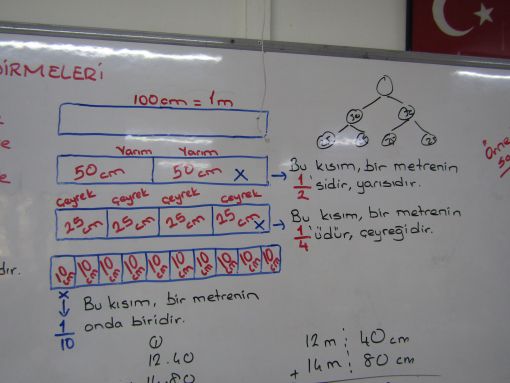 DİRMELERİ
100cm = 1m
Yarım Yarım
50cm 50cm x
Bu kısım, bir metrenin
1/2 'sidir, yarısıdır.
Çeyrek Çeyrek Çeyrek Çeyrek
25cm 25cm 25cm 25cm x
Bu kısım, bir metrenin
1/4 'üdür, çeyreğidir.
10cm 10cm 10cm 10cm 10cm 10cm 10cm 10cm 10cm 10cm
x
Bu kısım, bir metrenin
1/10 onda biridir.
50 50
25 25 25
dır.
Örne
12.40
14.80
12m 40cm
+ 14m 80cm